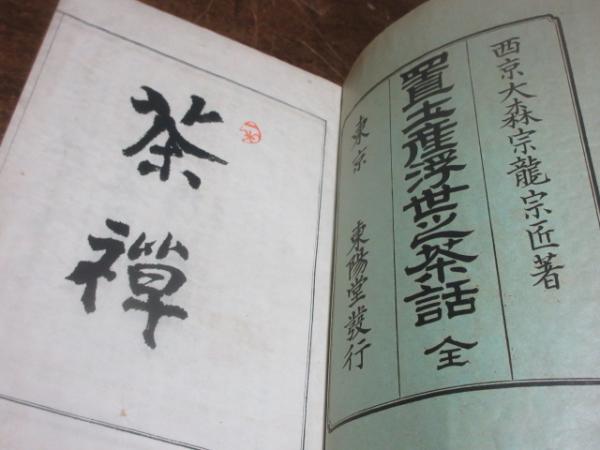 西京大森宗龍宗匠著
置土産浮世之茶話 全
東京 東陽堂發行
茶禪